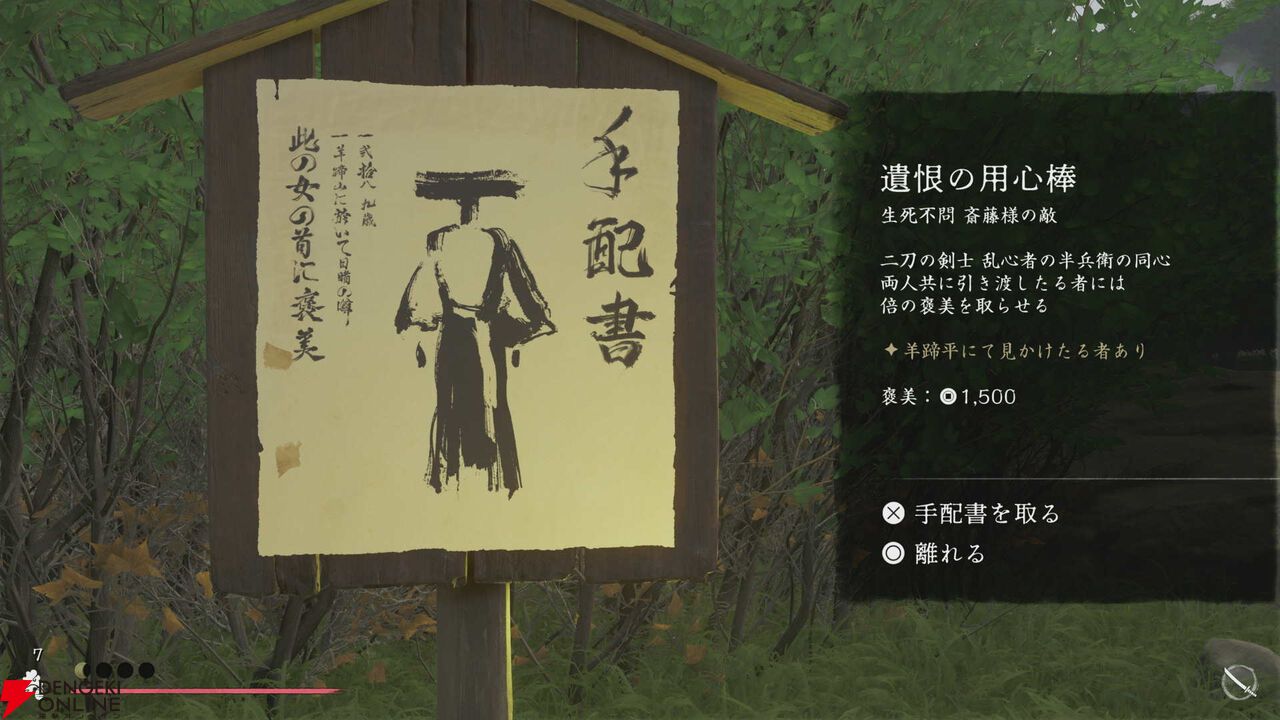 手配書
一 弐拾八 九歳
一 羊蹄山に於いて目睹の噂
此の女の首に褒美
遺恨の用心棒
生死不問 斎藤様の敵
二刀の剣士 乱心者の半兵衛の同心
両人共に引き渡したる者には
倍の褒美を取らせる
羊蹄平にて見かけたる者あり
褒美：1,500
手配書を取る
離れる
7
DENGEKI
ONLINE